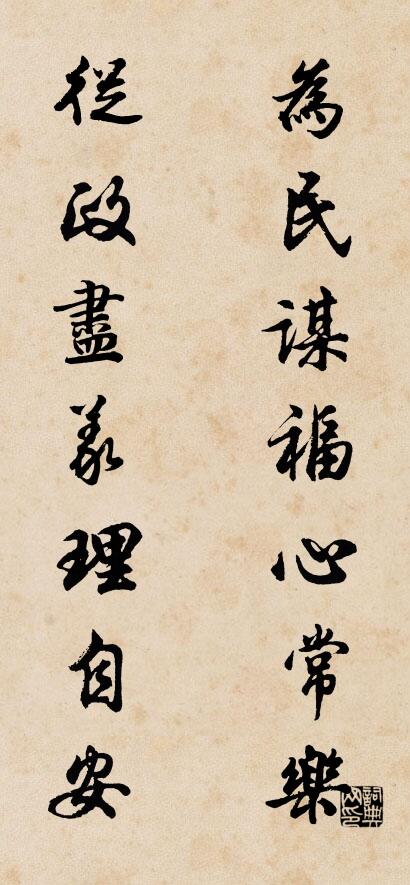 為民謀福心常樂
從政盡義理自安